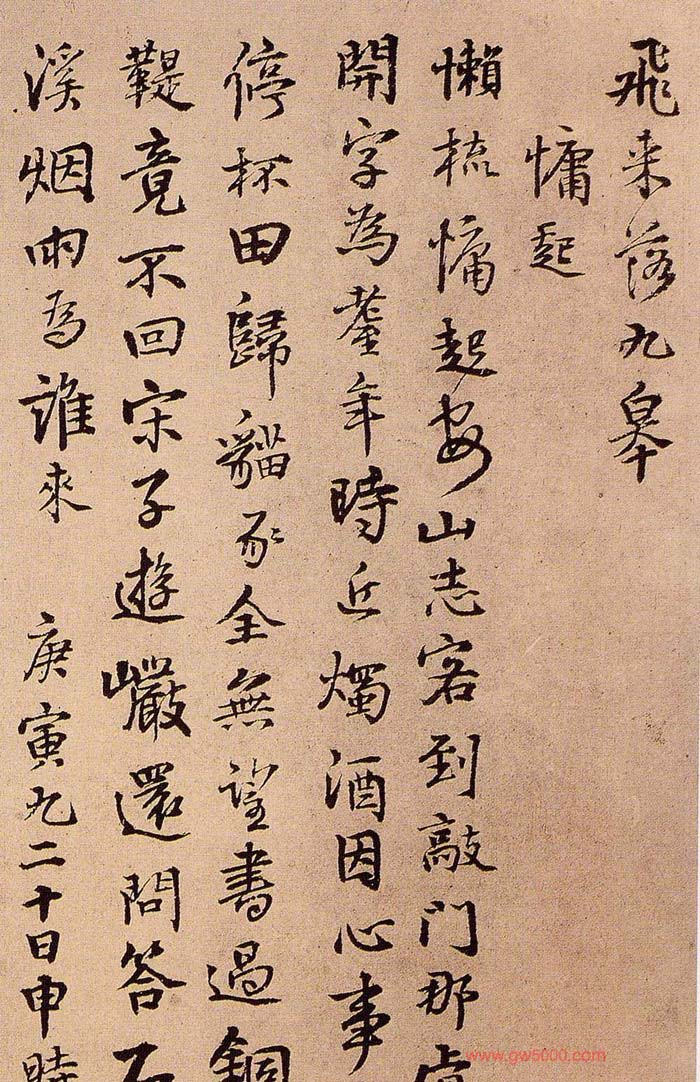 飛来落九皋
慵起
懶梳慵起安山志客到敲門那
開字為耋年時近燭酒因心事
停杯田歸貓豕全無望書過銅
鞮竟不回宋子遊巖還問答石
溪烟雨為誰來
庚寅九二十日申時
www.gw5000.com